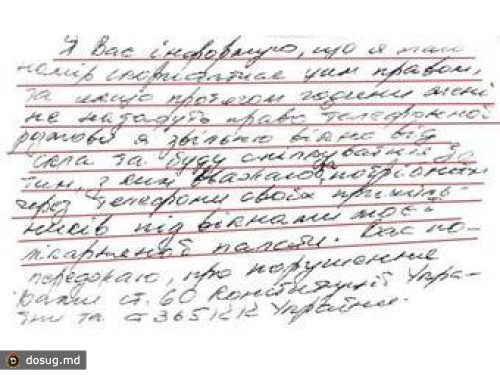 Я Вас інформую, що я маю
намір скористатися цим правом,
та якщо протягом години мені
не нададуть право телефонної
розмови я звільню вікно від
скла та буду спілкуватися з
тим, з ким вважаю потрібним
через телефони своїх прихиль-
ників під вікнами моєї
лікарняної палати. Вас по-
переджаю, про порушення
Вами ст. 60 Конституції Укра-
їни та ст 365 КК України.
dosug.md